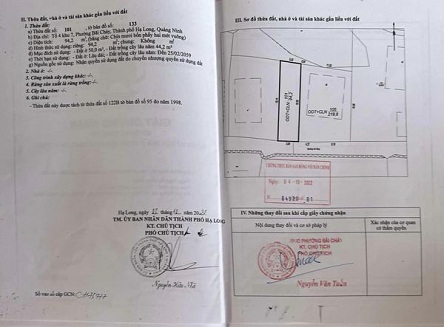 II. Thửa đất, nhà ở và tài sản khác gắn liền với đất
1. Thửa đất:
a) Thửa đất số: 101 , tờ bản đồ số: 133
b) Địa chỉ: Tổ 4 khu 7, Phường Bãi Cháy, Thành phố Hạ Long, Quảng Ninh
c) Diện tích: 94,2 m², (bằng chữ: Chín mươi bốn phẩy hai mét vuông)
d) Hình thức sử dụng: riêng: 94,2 m², chung: Không m²
đ) Mục đích sử dụng: - Đất ở 50,0 m², - Đất trồng cây lâu năm 44,2 m²
e) Thời hạn sử dụng: - Đất ở: Lâu dài; - Đất trồng cây lâu năm: Đến 25/03/2059
g) Nguồn gốc sử dụng: Nhận quyền sử dụng đất do chuyển nhượng quyền sử dụng đất
2. Nhà ở: -/-.
3. Công trình xây dựng khác: -/-.
4. Rừng sản xuất là rừng trồng: -/-.
5. Cây lâu năm: -/-.
6. Ghi chú:
- Thửa đất này được tách từ thửa đất số 122B tờ bản đồ số 95 đo năm 1998.
Hạ Long, ngày
TM. ỦY BAN NHÂN DÂN THÀNH PHỐ HẠ LONG
KT. CHỦ TỊCH
PHÓ CHỦ TỊCH
Số vào sổ cấp GCN:
III. Sơ đồ thửa đất, nhà ở và tài sản khác gắn liền với đất
ODT+CLN
94,2
ODT+CLN
Ngày
04-10-2022
IV. Những thay đổi sau khi cấp giấy chứng nhận
Nội dung thay đổi và cơ sở pháp lý
Xác nhận của cơ quan có thẩm quyền
PHƯỜNG BÃI CHÁY
KT. CHỦ TỊCH
PHÓ CHỦ TỊCH
Nguyễn Văn Tuấn